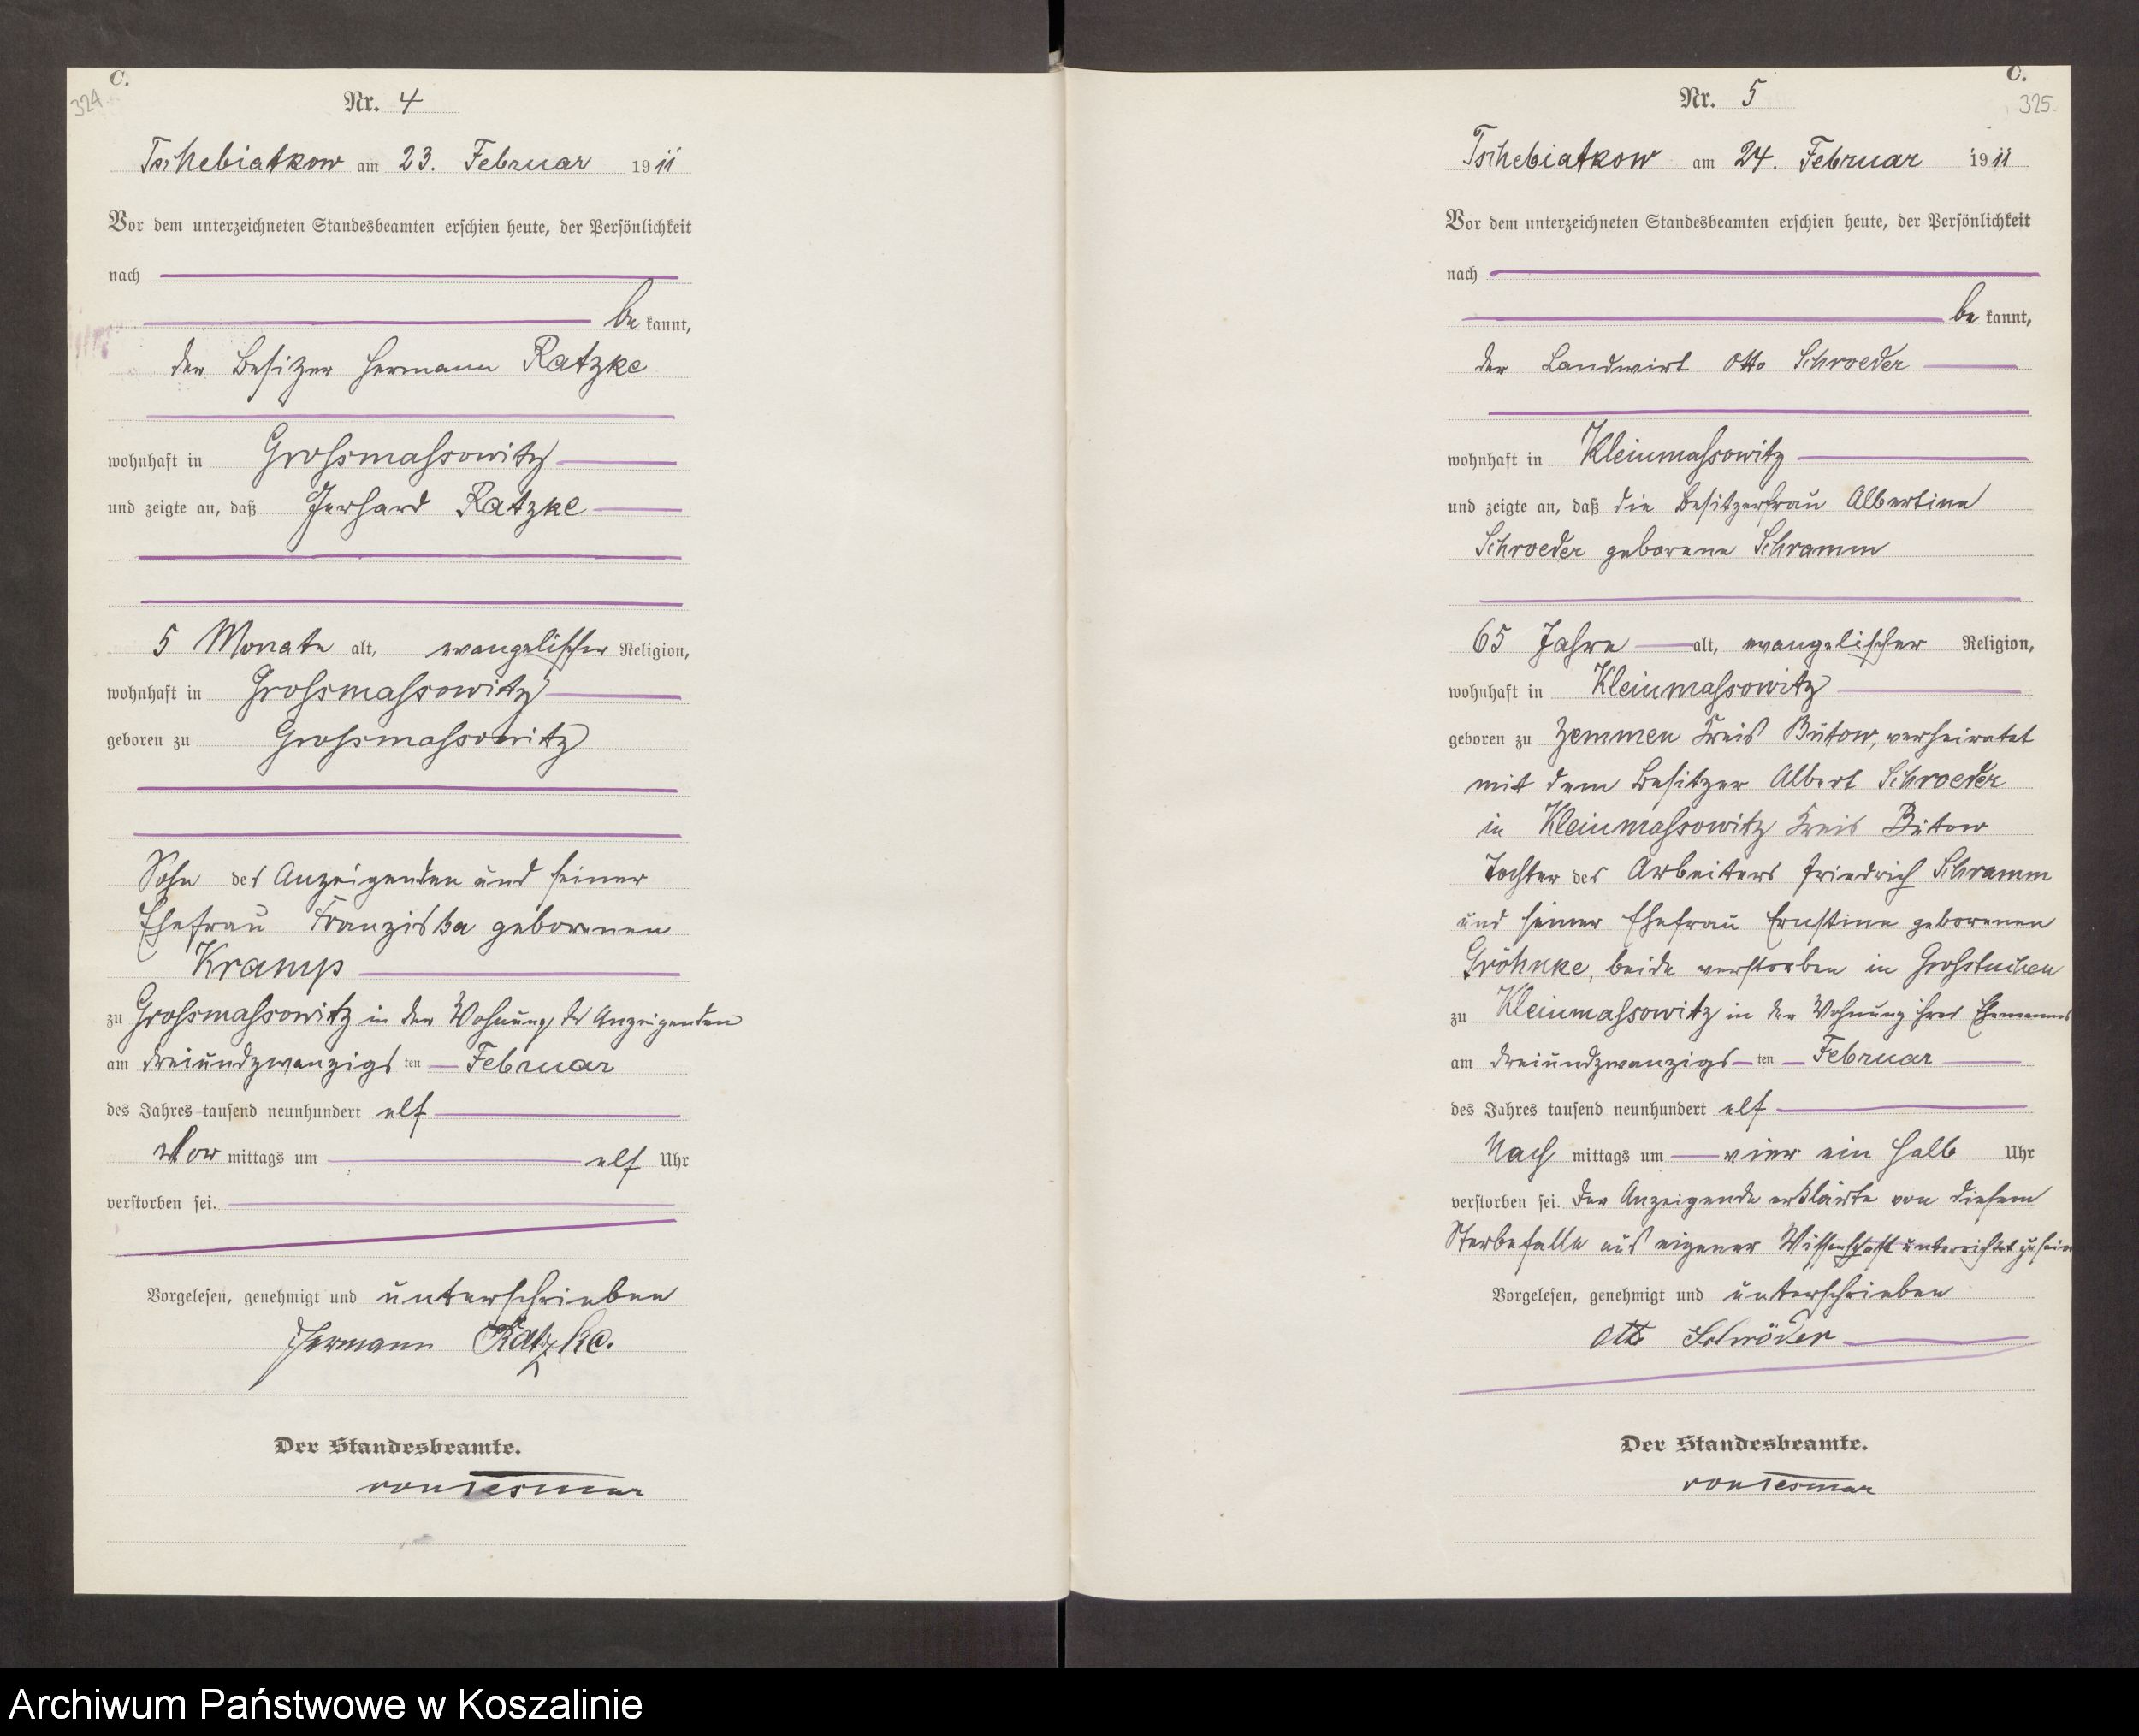 C.
324
Nr. 4
Tschebiatkow am 23. Februar 1911
Vor dem unterzeichneten Standesbeamten erschien heute, der Persönlichkeit
nach
be kannt,
der Besitzer Hermann Ratzke
wohnhaft in Grossmassowitz
und zeigte an, daß Gerhard Ratzke
5 Monate alt, evangelischer Religion,
wohnhaft in Grossmassowitz
geboren zu Grossmassowitz
Sohn des Anzeigenden und seiner
Ehefrau Franziska geborenen
Kramp
zu Grossmassowitz in der Wohnung des Anzeigenden
am dreiundzwanzigs ten Februar
des Jahres tausend neunhundert elf
Vor mittags um elf Uhr
verstorben sei.
Vorgelesen, genehmigt und unterschrieben
Hermann Ratzke.
Der Standesbeamte.
von Tesmar
C.
325.
Nr. 5
Tschebiatkow am 24. Februar 1911
Vor dem unterzeichneten Standesbeamten erschien heute, der Persönlichkeit
nach
be kannt,
der Landwirt Otto Schroeder
wohnhaft in Kleinmassowitz
und zeigte an, daß die Besitzerfrau Albertine
Schroeder geborene Schramm
65 Jahre alt, evangelischer Religion,
wohnhaft in Kleinmassowitz
geboren zu Zemmen Kreis Bütow, verheiratet
mit dem Besitzer Albert Schroeder
in Kleinmassowitz Kreis Bütow
Tochter des Arbeiters Friedrich Schramm
und seiner Ehefrau Ernstine geborenen
Gröhnke, beide verstorben in Grosstuchen
zu Kleinmassowitz in der Wohnung ihres Ehemannes
am dreiundzwanzigs ten Februar
des Jahres tausend neunhundert elf
Nach mittags um vier ein halb Uhr
verstorben sei. Der Anzeigende erklärte von diesem
Sterbefalle aus eigener Wissenschaft unterrichtet zu sein
Vorgelesen, genehmigt und unterschrieben
Otto Schröder
Der Standesbeamte.
von Tesmar
Archiwum Państwowe w Koszalinie